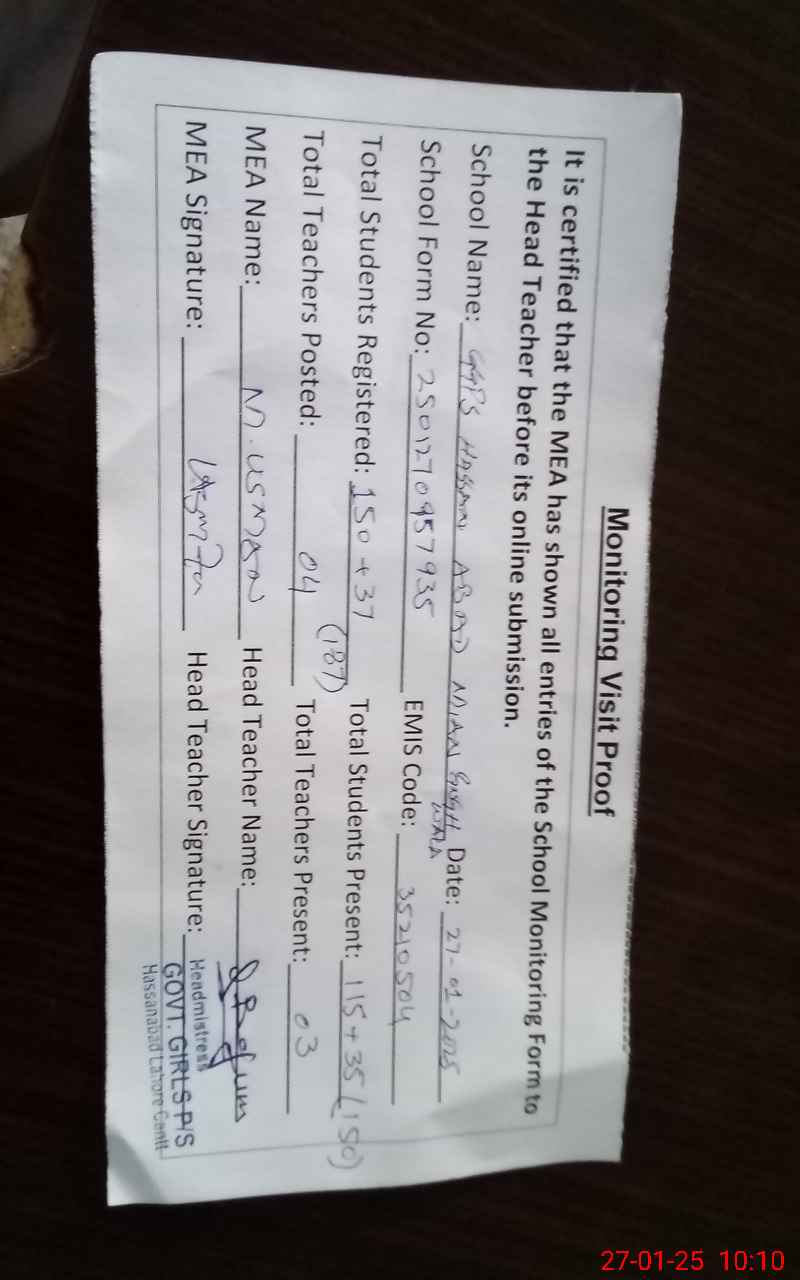 Monitoring Visit Proof
It is certified that the MEA has shown all entries of the School Monitoring Form to
the Head Teacher before its online submission.
School Name: GGPS HASSAN ABAD MIAN SINGH WALA Date: 27-01-2025
School Form No: 2501270957935 EMIS Code: 35210504
Total Students Registered: 150 + 37 (187) Total Students Present: 115 + 35 (150)
Total Teachers Posted: 04 Total Teachers Present: 03
MEA Name: M. USMAN Head Teacher Name:
MEA Signature: Head Teacher Signature:
Headmistress
GOVT. GIRLS P/S
Hassanabad Lahore Cantt
27-01-25 10:10